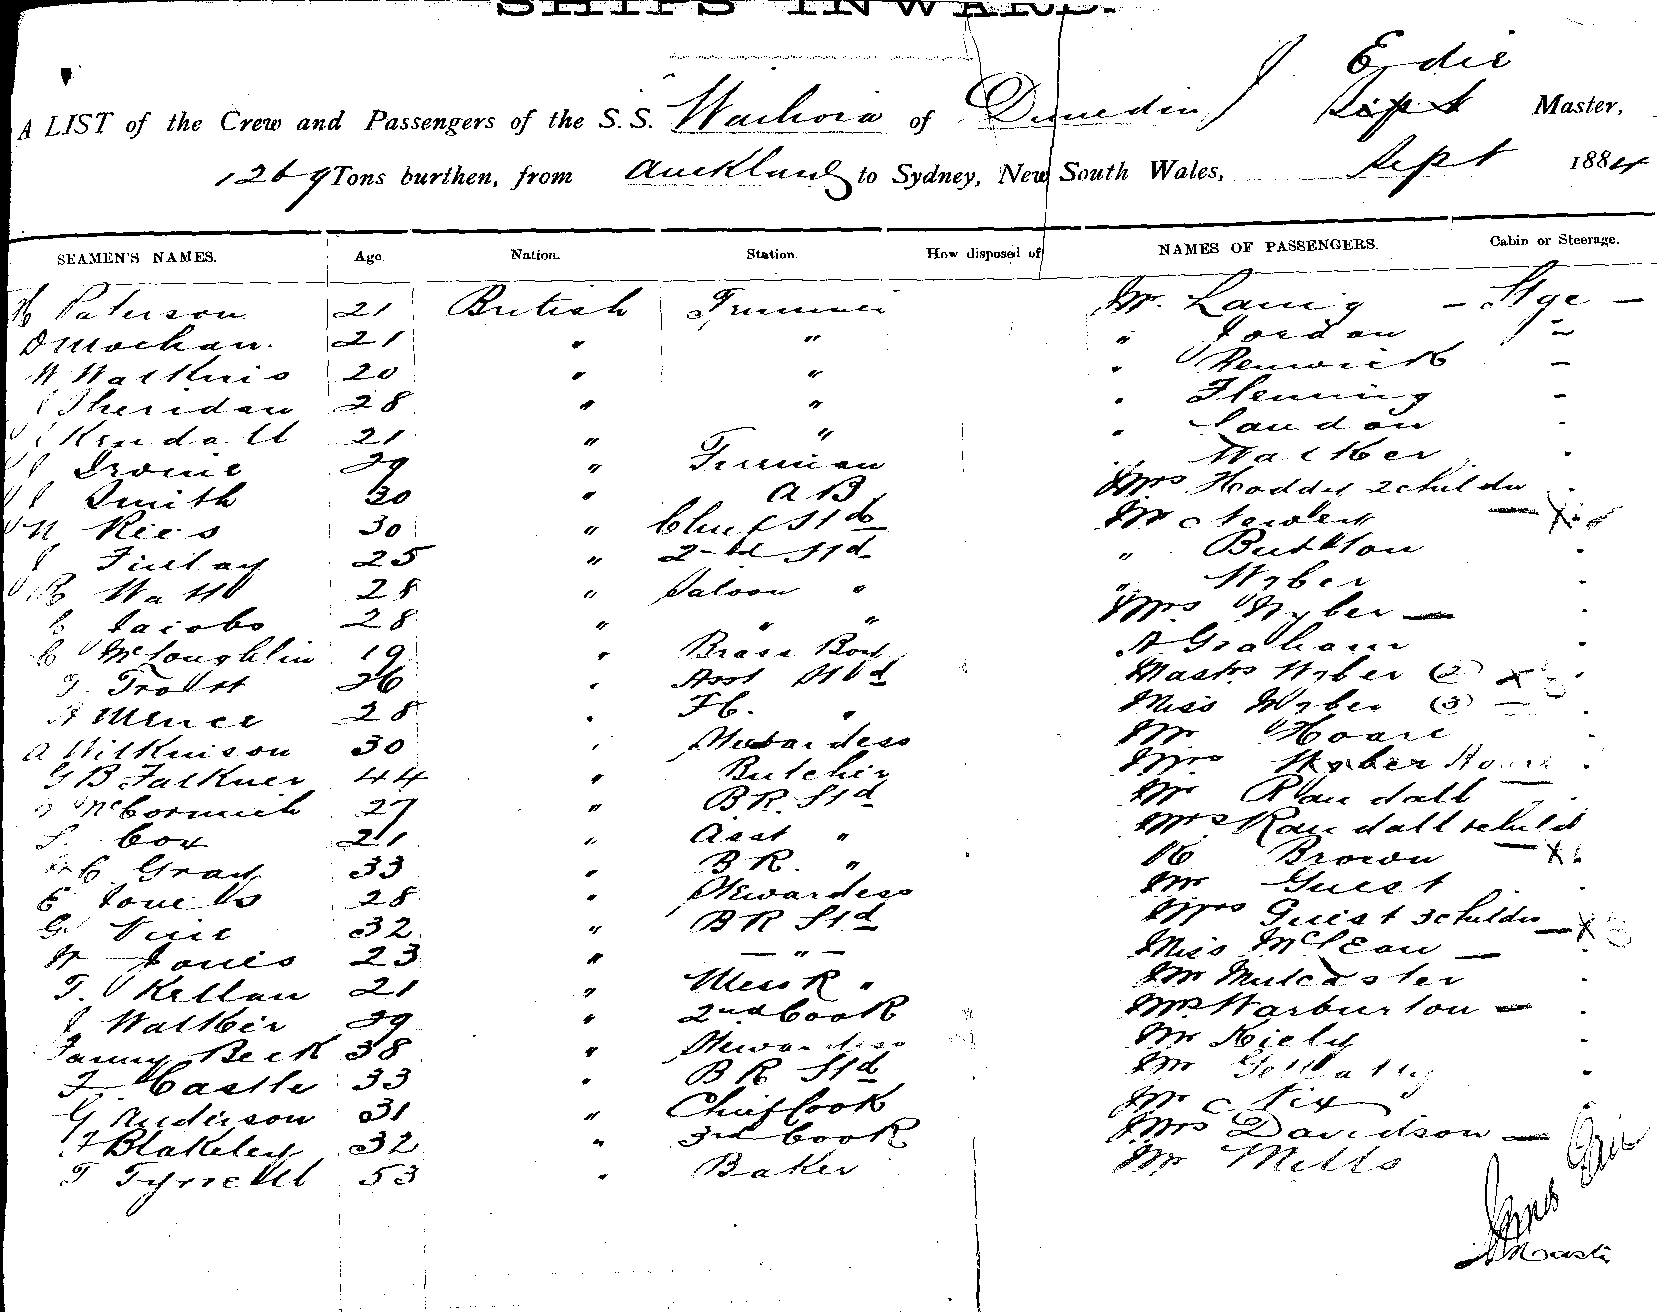 SHIPS INWARD.
A LIST of the Crew and Passengers of the S.S. Waihora of Dunedin, J Edie Master,
1269 Tons burthen, from Auckland to Sydney, New South Wales, Sept 1884
SEAMEN'S NAMES. Age. Nation. Station. How disposed of NAMES OF PASSENGERS. Cabin or Steerage.
Paterson 21 British Trimmer Mr. Laing - Stge -
21 " " " Jordan " -
W Watkins 20 " " " Renwick -
J Sheridan 28 " " " Fleming -
J Kendall 21 " " " Landon
J Irvine 29 " Fireman " Walker
J Smith 30 " A B, Mrs Hodder 2 childn
Rees 30 " Chief Std Mr
J Finlay 25 " 2nd Std " Button
R Watt 28 " Saloon " " Wyber
C Jacobs 28 " " " Mrs Wyber -
C McLoughlin 19 " Brass Boy A Graham
T. Trott 26 " Asst Std Masts Wyber (2) x
A 28 " F C. " Miss Wyber (3) -
A Wilkinson 30 " Stewardess Mr Hoare
G B Falkner 44 " Butcher Mrs Hoare
McCormick 27 " B.R. Std Mr Randall
S. Cox 21 " Asst " Mrs Randall 1 child
C Gray 33 " B R. " Brown - x
E 28 " Stewardess Mr Guest
G 32 " B R Std Mrs Guest 3 childn - x
W Jones 23 " - " - Miss McLean -
T. Kellan 21 " Mess R " Mr Mulcaster
J Walker 29 " 2nd Cook Mrs Warburton -
Fanny Beck 38 " Stewardess Mr Kiely
F Castle 33 " B R Std Mr
G Anderson 31 " Chief Cook Mr Nix
F Blakeley 32 " 3rd Cook Mrs Davidson -
T Tyrrell 53 " Baker Mr Mills
Master